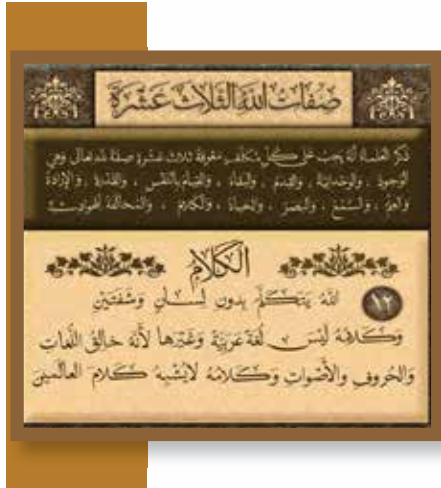 صِفَاتُ اللهِ الثَّلَاثَ عَشْرَةَ
ذَكَرَ العُلَمَاءُ أَنَّهُ يَجِبُ عَلَى كُلِّ مُكَلَّفٍ مَعْرِفَةُ ثَلَاثَ عَشْرَةَ صِفَةً للهِ تَعَالَى وَهِيَ
الوُجُودُ ، وَالوَحْدَانِيَّةُ ، وَالقِدَمُ ، وَالبَقَاءُ ، وَالقِيَامُ بِالنَّفْسِ ، وَالقُدْرَةُ ، وَالإِرَادَةُ
وَالعِلْمُ ، وَالسَّمْعُ ، وَالبَصَرُ ، وَالحَيَاةُ ، وَالكَلَامُ ، وَالمُخَالَفَةُ لِلْحَوَادِثِ
الكَلَامُ
١٢ اللهُ يَتَكَلَّمُ بِدُونِ لِسَانٍ وَشَفَتَيْنِ
وَكَلَامُهُ لَيْسَ لُغَةً عَرَبِيَّةً وَغَيْرَهَا لِأَنَّهُ خَالِقُ اللُّغَاتِ
وَالحُرُوفِ وَالأَصْوَاتِ وَكَلَامُهُ لَا يُشْبِهُ كَلَامَ العَالَمِينَ